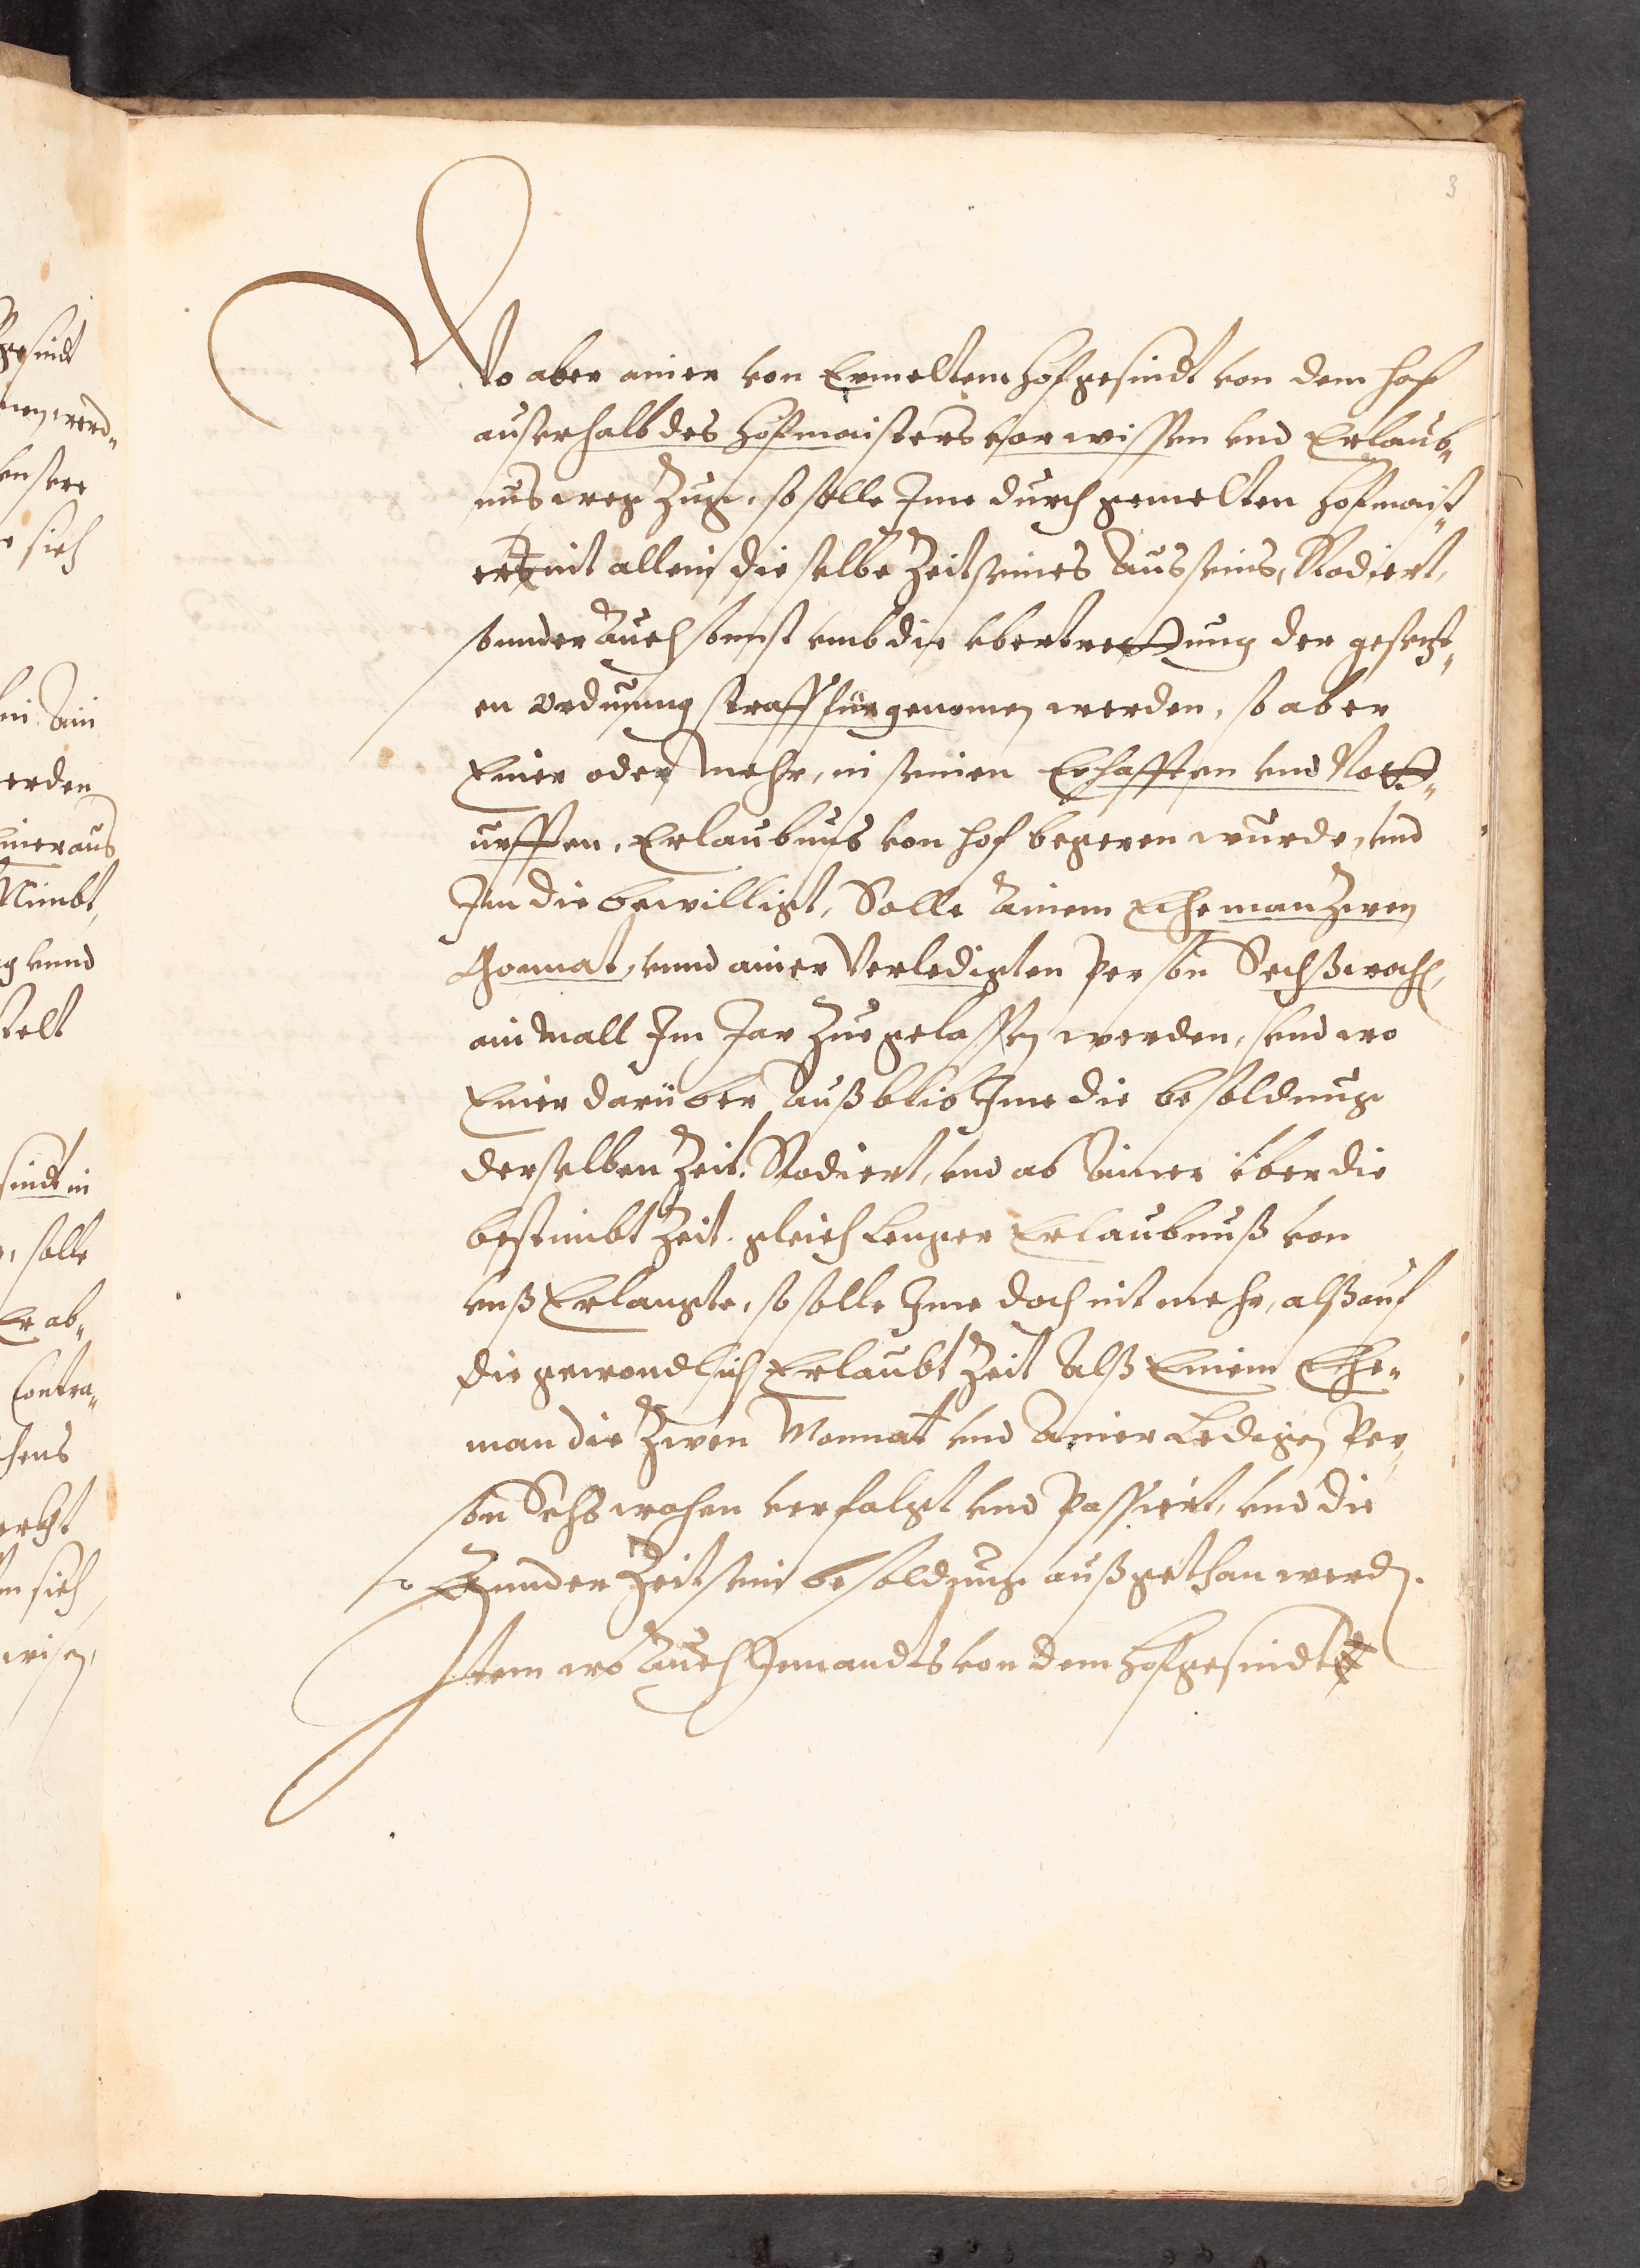 3
Wo aber ainer von Ermeltem hofgesindt von dem hof
auserhalb des hofmaisters vorwissen vnd Erlaub„
nus weg zuge, so solle Jme durch gemelten hofmaist„
er nit allein die selbe Zeit seines Ausseins, Rodiert,
sunder Auch sunst vmb die vbertrettung der gesetzt„
en ordnung straff fürgenomen werden, so aber
Einer oder mehr, in seinen Ehafften vnd Nott„
urfften, Erlaubnus von hof begeren wurde, vnd
Jm die bewilligt, Solle Ainem Ehe man Zwen
Monnat, vnnd ainer Verledigten Person Sechß woch,
ain mall Jm Jar Zuegelassen werden, vnd wo
Einer darüber Außblib Jme die besoldung
derselben Zeit, Rodiert, vnd ob Ainer über die
bestimbt Zeit. gleich lenger Erlaubnuß von
vnß Erlangte, so solle Jme doch nit mehr, alß auf
die gewondlich Erlaubt Zeit Alß Einem Ehe„
man die Zwen Monnat vnd Ainer Ledigen Per„
son Sechs wochen verfolgt vnd Passiert, vnd die
Zeit sein besoldung außgethan werden.
Jtem wo Auch Jemandts von dem hofgesindt
gesindt
werd„
sich
Ain
werden
Einer aus
Nimbt,
vnnd
solle
Er ab„
Contra„
sich